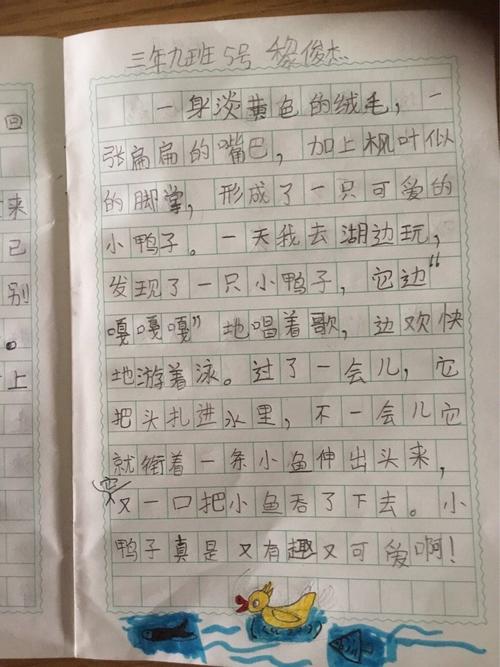 三年九班5号 黎俊杰
一身淡黄色的绒毛，一
张扁扁的嘴巴，加上枫叶似
的脚掌，形成了一只可爱的
小鸭子。一天我去湖边玩，
发现了一只小鸭子，它边“
嘎嘎嘎”地唱着歌，边欢快
地游着泳。过了一会儿，它
把头扎进水里，不一会儿它
就衔着一条小鱼伸出头来，
又一口把小鱼吞了下去。小
鸭子真是又有趣又可爱啊！
回
来
己
别
。
上